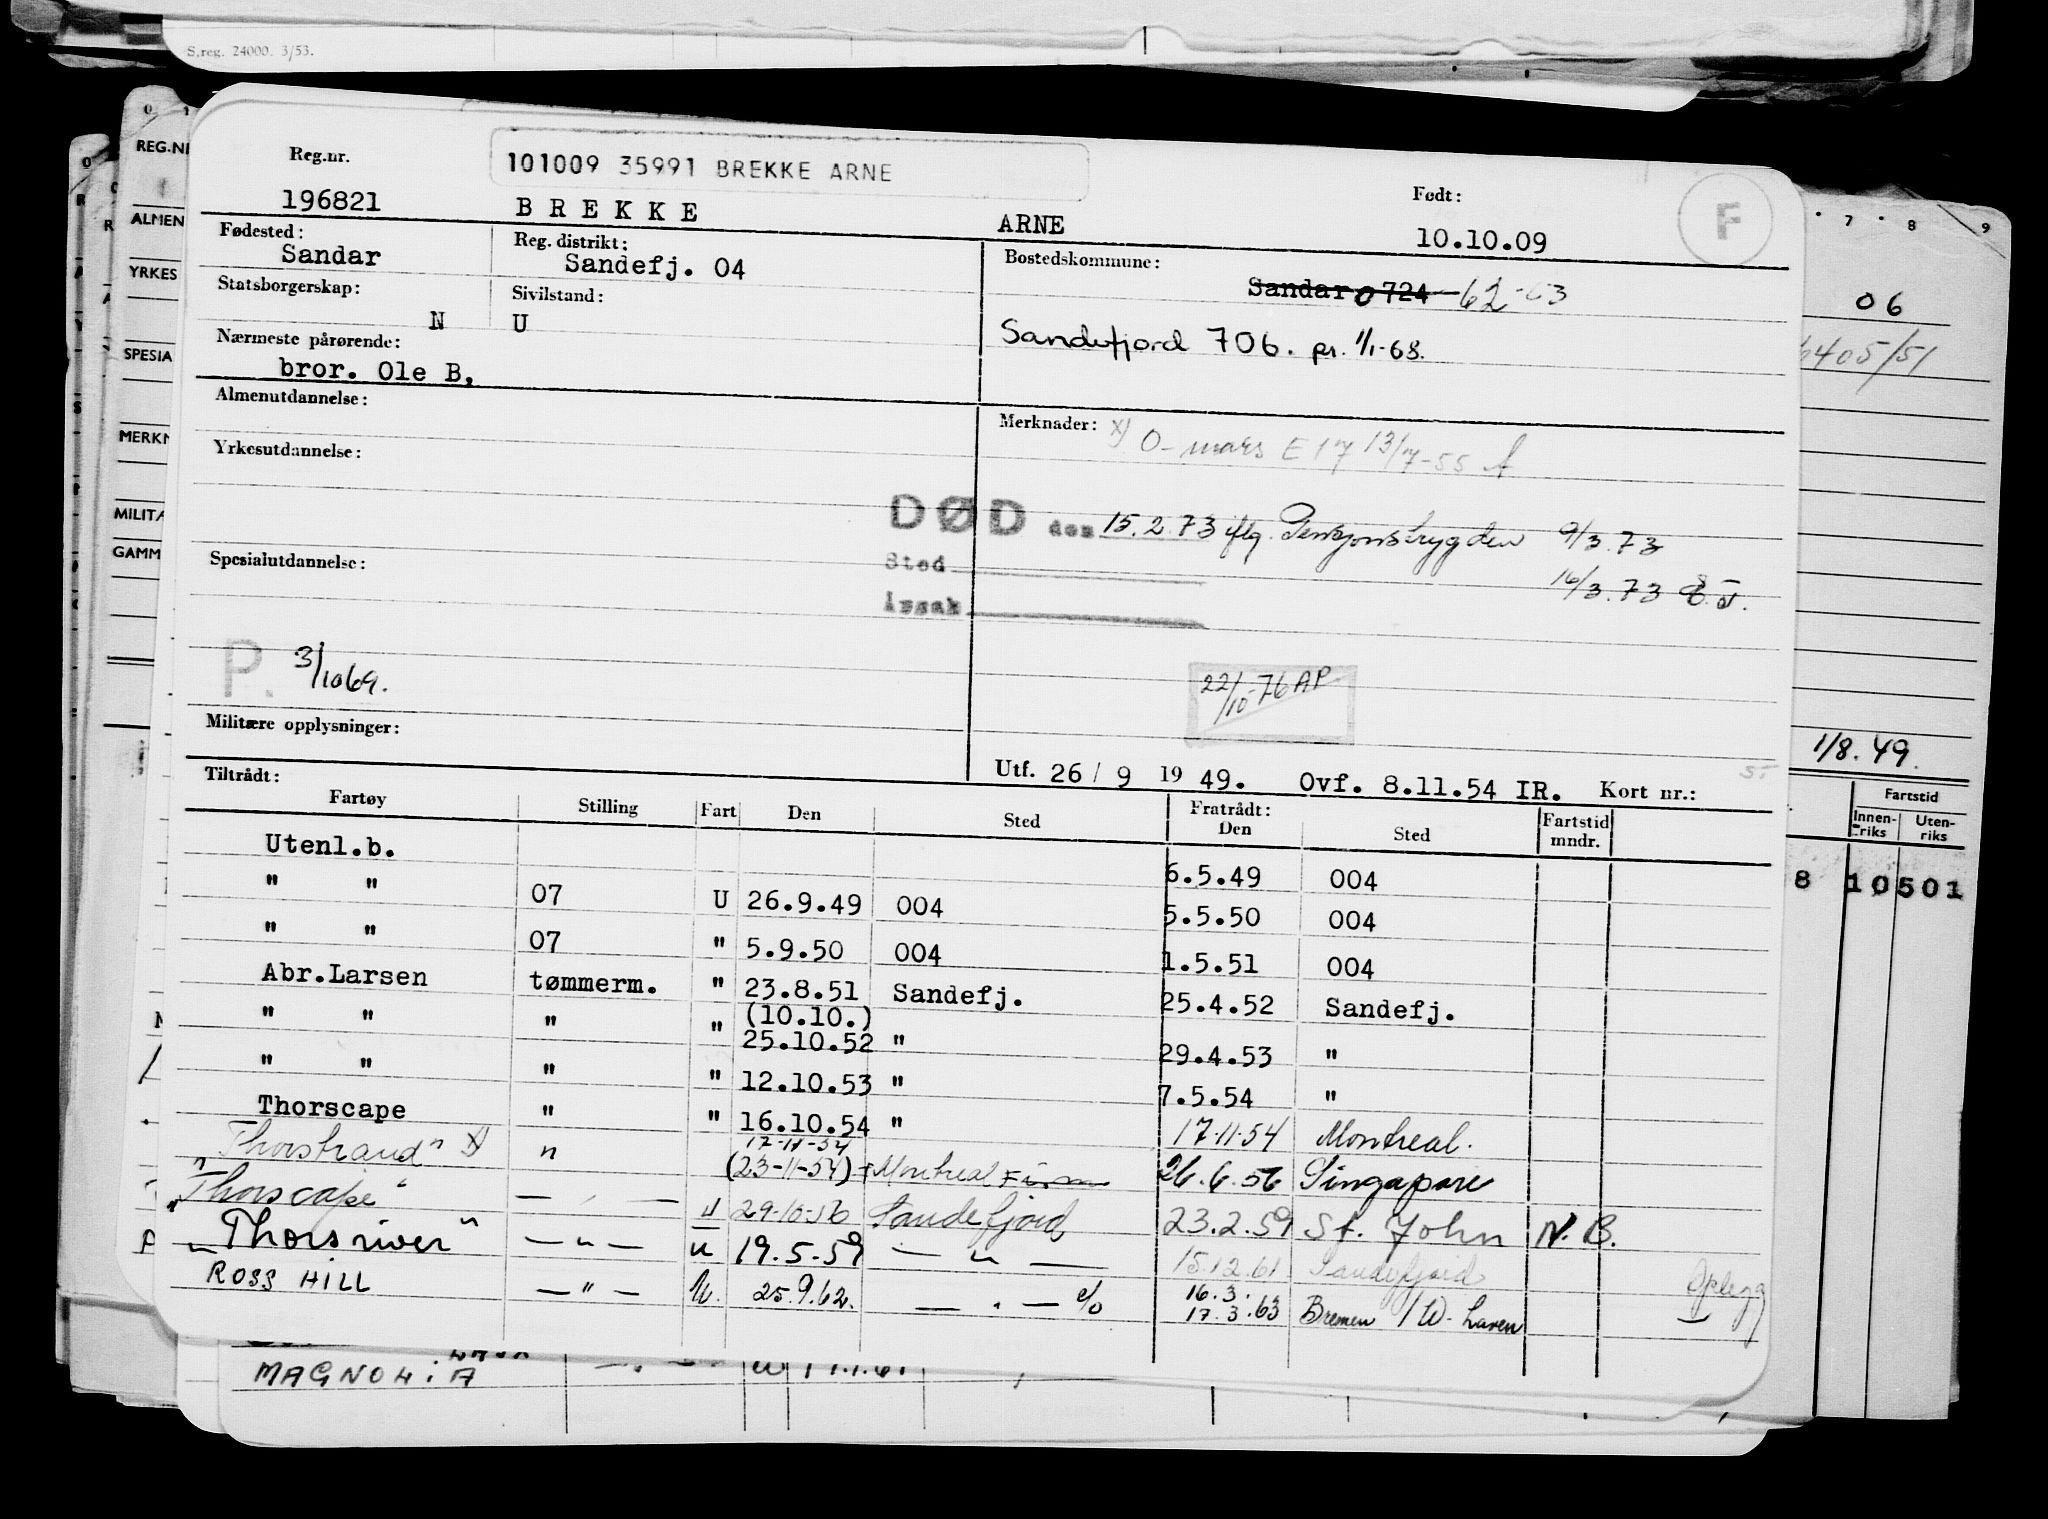 S.reg. 24000. 3/53.
Reg.nr. 101009 35991 BREKKE ARNE Født: F
196821 BREKKE ARNE 10.10.09
Fødested: Reg. distrikt: Bostedskommune:
Sandar Sandefj. 04 Sandar 0724 62-63
Statsborgerskap: Sivilstand:
N U Sandefjord 706. pr. 1/1-68.
Nærmeste pårørende:
bror. Ole B,
Almenutdannelse: Merknader: x) O- mars E 17 13/7-55
Yrkesutdannelse:
DØD den 15.2.73 iflg. Pensjonstrygden 9/3.73
Spesialutdannelse: Sted 16/3.73
Årsak
P. 3/10 69.
22/10-76 AP
Militære opplysninger:
Utf. 26/9 1949. Ovf. 8.11.54 IR. Kort nr.:
Tiltrådt: Fratrådt:
Fartøy Stilling Fart Den Sted Den Sted Fartstid mndr.
Utenl.b. 6.5.49 004
" " 07 U 26.9.49 004 5.5.50 004
" " 07 " 5.9.50 004 1.5.51 004
Abr.Larsen tømmerm. " 23.8.51 Sandefj. 25.4.52 Sandefj.
" " " " (10.10.) 25.10.52 " 29.4.53 "
" " " " 12.10.53 " 7.5.54 "
Thorscape " " 16.10.54 " 17.11.54 Montreal.
"Thorstrand" x) " 17-11-54 (23-11-54) Montreal 26.6.56 Singapore
"Thorscape" — " — u 29-10-56 Sandefjord 23.2.59 St. John N.B.
"Thorsriver" — " — u 19.5-59 — " — 15.12.61 Sandefjord
ROSS HILL — " — U. 25.9.62. — " — c/o 16.3. 17.3.63 Bremen / W. haven
Opplegg
MAGNOLIA
REG.NR
ALMEN
YRKES
SPESIA
MERKN
MILITÆ
GAMM
7 8 9
06
405/51
1/8.49.
Fartstid
Innenriks Utenriks
8 10501